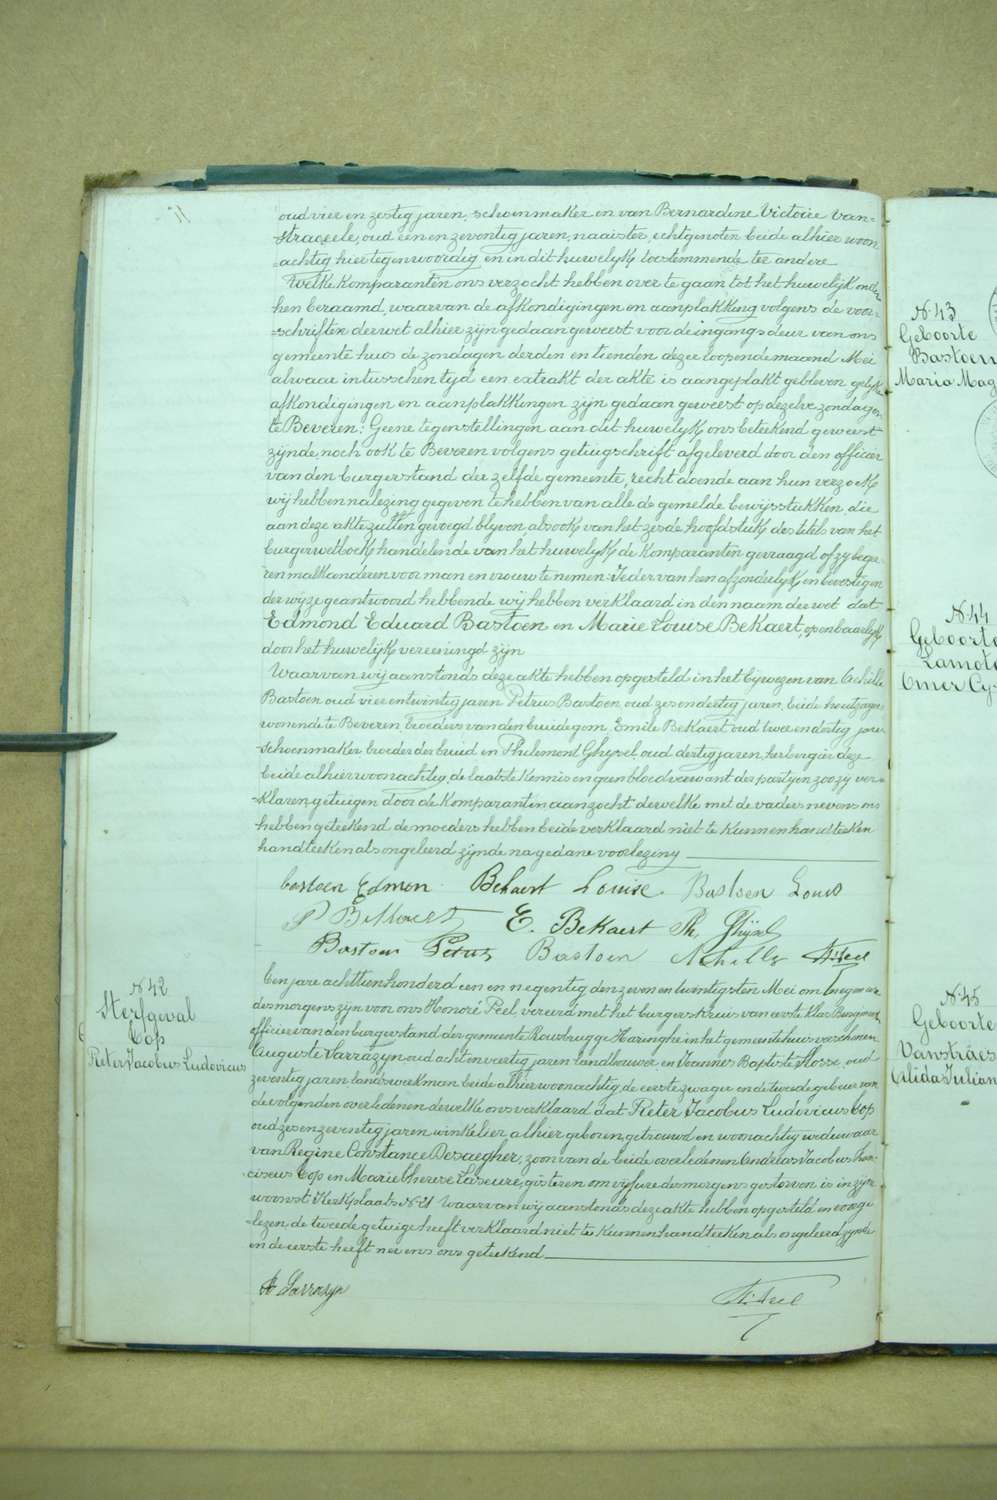 oud vier en zestig jaren, schoenmaker en van Bernardine Victoire Van=
straceele, oud een en zeventig jaren, naaister, echtgenoten beide alhier woon
=achtig hier tegenwoordig en in dit huwelijk toestemmende ter andere
Welke Komparanten ons verzocht hebben over te gaan tot het huwelijk onder
hen beraamd, waarvan de afkondigingen en aanplakking volgens de voor=
=schriften der wet alhier zijn gedaan geweest voor de ingangsdeur van ons
gemeente huis de zondagen derden en tienden dezer loopende maand Mei
alwaar intusschen tijd een extrakt der akte is aangeplakt gebleven gelijke
afkondigingen en aanplakkingen zijn gedaan geweest op dezelve zondagen
te Beveren. Geene tegenstellingen aan dit huwelyk ons beteekend geweest
zijnde, noch ook te Beveren volgens getuigschrift afgeleverd door den officier
van den burgerstand der zelfde gemeente, recht doende aan hun verzoek
wij hebben na lezing gegeven te hebben van alle de gemelde bewijsstukken die
aan deze akte zullen gevoegd blyven alsook van het zesde hoofdstuk des titels van het
burgerwetboek handelende van het huwelyk de Komparanten gevraagd of zy bege=
ren malkanderen voor man en vrouw te nemen: Ieder van hen afzonderlyk en bevestigen
der wyze geantwoord hebbende wij hebben verklaard in den naam der wet dat
Edmond Eduard Bastoen en Marie Louise BeKaert, openbaarlyk
door het huwelijk vereenigd zijn
Waarvan wij aanstonds deze akte hebben opgesteld in het bijwezen van Achille
Bastoen oud vier en twintig jaren Petrus Bastoen oud zes en dertig jaren, beide houtzager
wonende te Beveren, broeders van den bruidegom, Emile BeKaert oud twee en dertig jaren
schoenmaker broeder der bruid en Philement Ghysel oud dertig jaren, herbergier deze
beide alhier woonachtig, de laatste kennis en geen bloedverwant der partyen zoo zy ver=
=klaren, getuigen door de Komparanten aanzocht derwelke met de vaders nevens ons
hebben geteekend, de moeders hebben beide verklaard niet te kunnen handteeken
handteeken als ongeleerd zijnde na gedane voorlezing
bastoen Edmon Bekaert Louise Bastoen Louis
P BeKaert E. BeKaert Ph. Ghysel
Bastoen Petrus Bastoen Achille H. Peel
N. 42
Sterfgeval
Cop
Pieter Jacobus Ludovicus
Een jare achttien honderd een en negentig den zeven en twintigsten Mei om tien uren
des morgens zijn voor ons Honoré Peel, vereerd met het burgerskruis van eerste klas Burgemeester
officier van den burgerstand der gemeente Rousbrugge Haringhe in het gemeentehuis verschenen
Auguste Sarrazyn, oud acht en veertig jaren landbouwer en Joannes Baptiste Flosse, oud
zeventig jaren landswerkman beide alhier woonachtig de eerste zwager en de tweede gebuur van
de volgenden overledenen, derwelke ons verklaard dat Pieter Jacobus Ludovicus Cop
oud zes en zeventig jaren, winkelier alhier geboren, getrouwd en woonachtig weduwaar
van Regine Constance Desaegher, zoon van de beide overledenen Andreas Jacobus Fran
ciscus Cop en Marie Therese Laseure, gisteren om vyf ure des morgens gestorven is in zijne
woonst Kerkplaats N. 21 Waarvan wij aanstonds deze akte hebben opgesteld en voorge
=lezen, de tweede getuige heeft verklaard niet te kunnen handteeken als ongeleerd zijnde
en de eerste heeft nevens ons geteekend
A Sarrazyn
H. Peel
N. 43
Geboorte
Bastoen
Maria Mag
N. 44
Geboorte
Lamote
Omer Cy
N. 45
Geboorte
Vanstraes
Alida Julian